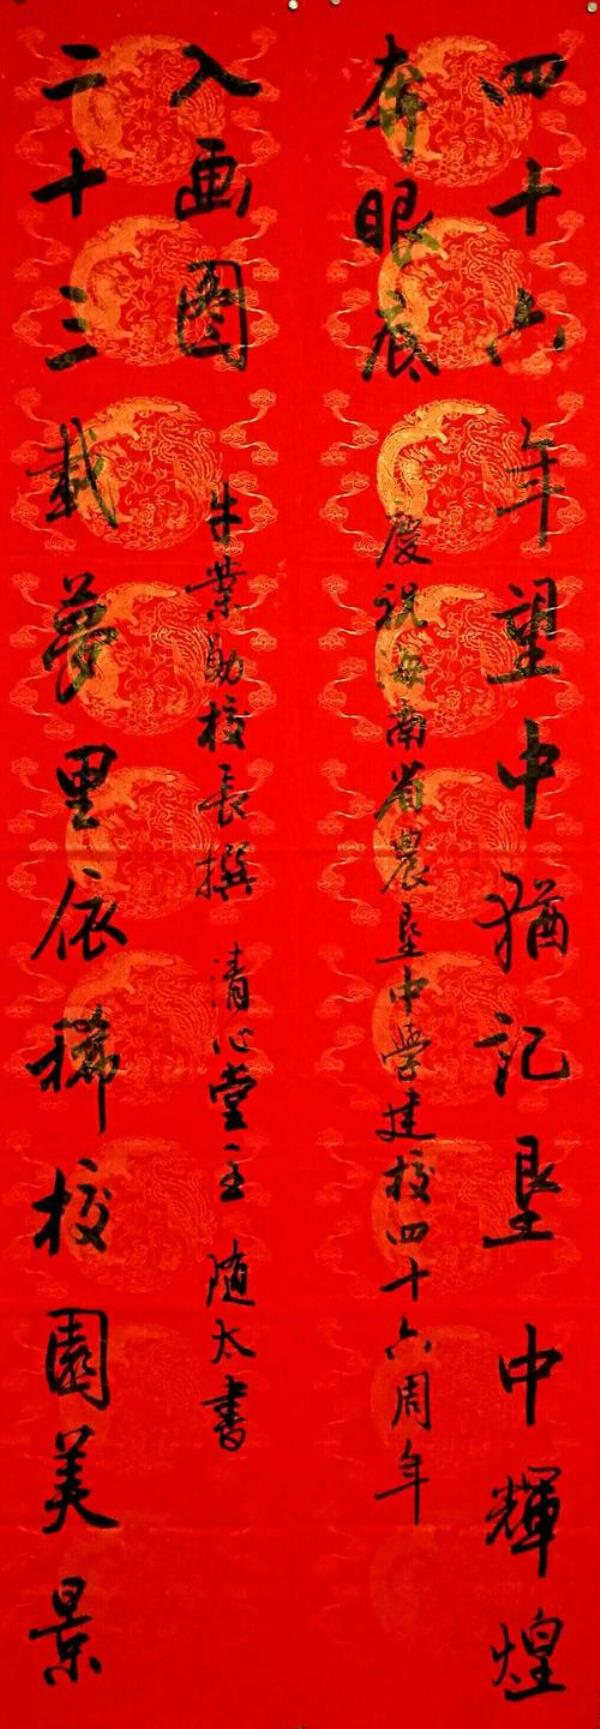 四十六年望中猶記垦中輝煌
奔眼底
慶祝海南省農垦中学建校四十六周年
二十三载夢里依稀校園美景
入画图
牛業勋校長撰 清心堂主 随太書